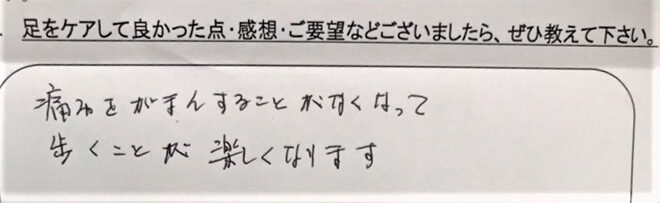 足をケアして良かった点・感想・ご要望などございましたら、ぜひ教えて下さい。
痛みをがまんすることがなくなって
歩くことが楽しくなります